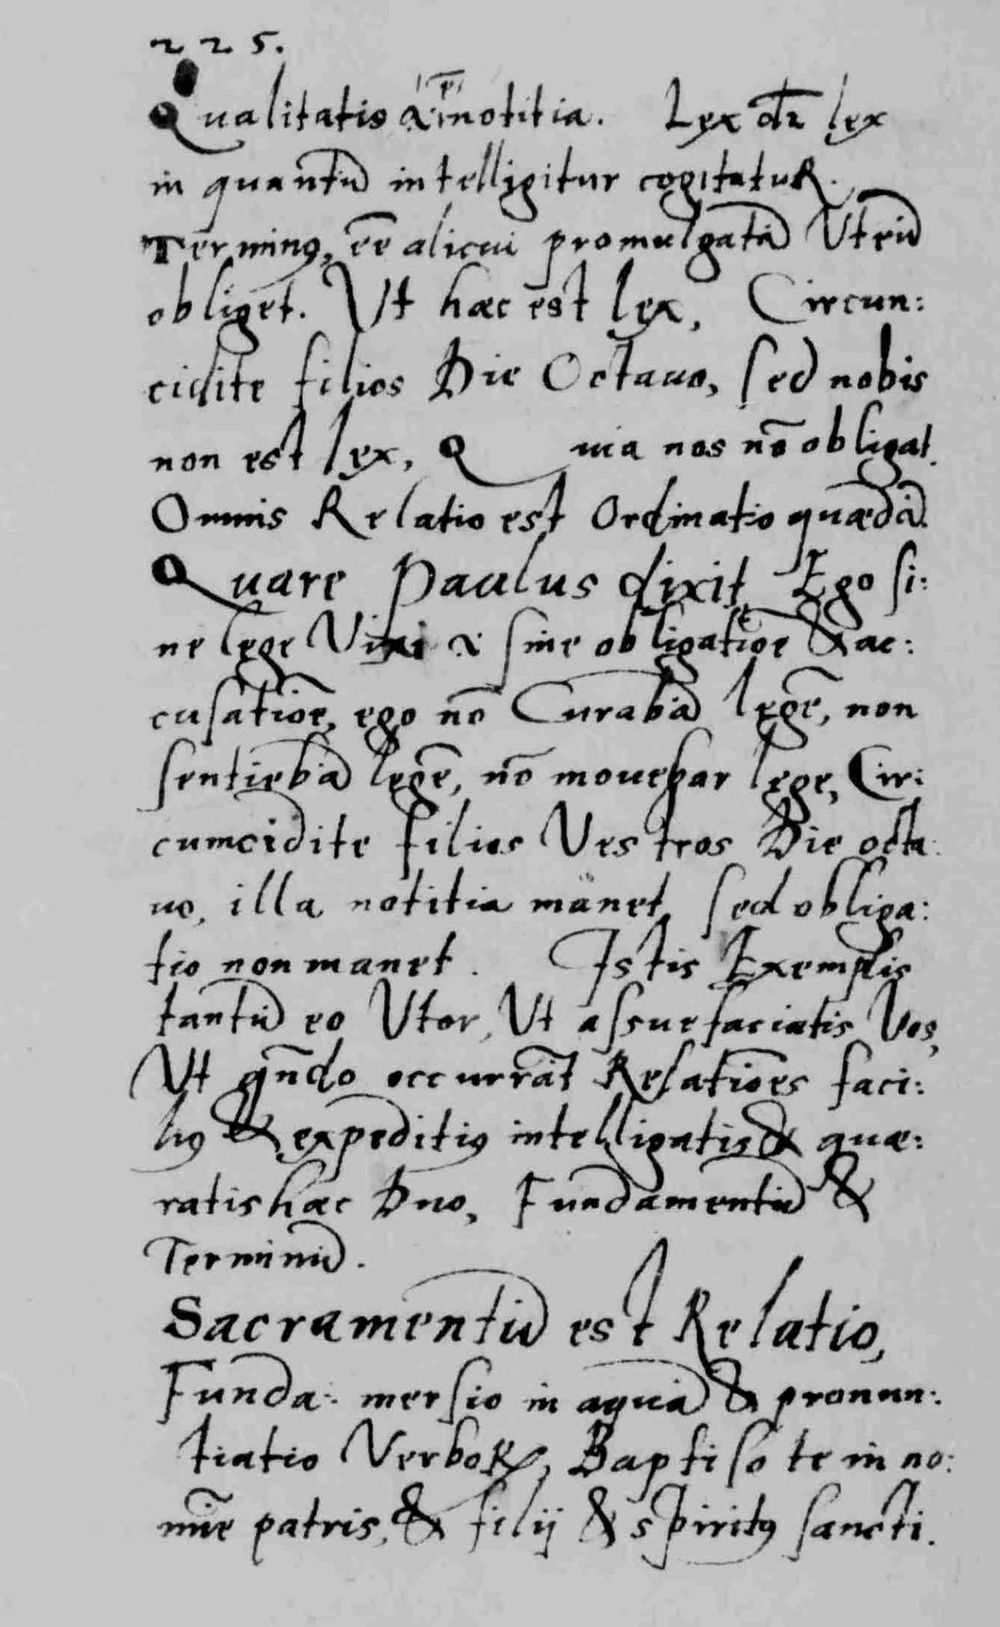 225.
Qualitatis notitia. Lex dr̄ lex
in quantū intelligitur cogitatur.
Terminꝰ, ēē alicui promulgatā Utrū
obliget. Ut hæc est lex, Circun:
cidite filios Die Octauo, sed nobis
non est lex, Quia nos nō obligat.
Omnis Relatio est Ordinatio quædā.
Quare Paulus dixit Ego si:
ne lege Vixi .i. sine obligatiōe & ac:
cusatiōe, ego nō Curabā legē, non
sentiebā legē, nō mouebar lege, Cir:
cumcidite filios Vestros Die octa:
uo, illa notitia manet, sed obliga:
tio non manet. Istis Exemplis
tantū eo Utor, Ut assuefaciatis Vos,
Ut qn̄do occurrāt Relatiōes faci:
liꝰ & expeditiꝰ intelligatis & quæ:
ratis hæc Duo, Fundamentū &
Terminū.
Sacramentū est Relatio,
Funda: mersio in aquā & pronun:
tiatio Verboꝝ, Baptiso te in no:
mīe patris, & filij & spiritꝰ sancti.